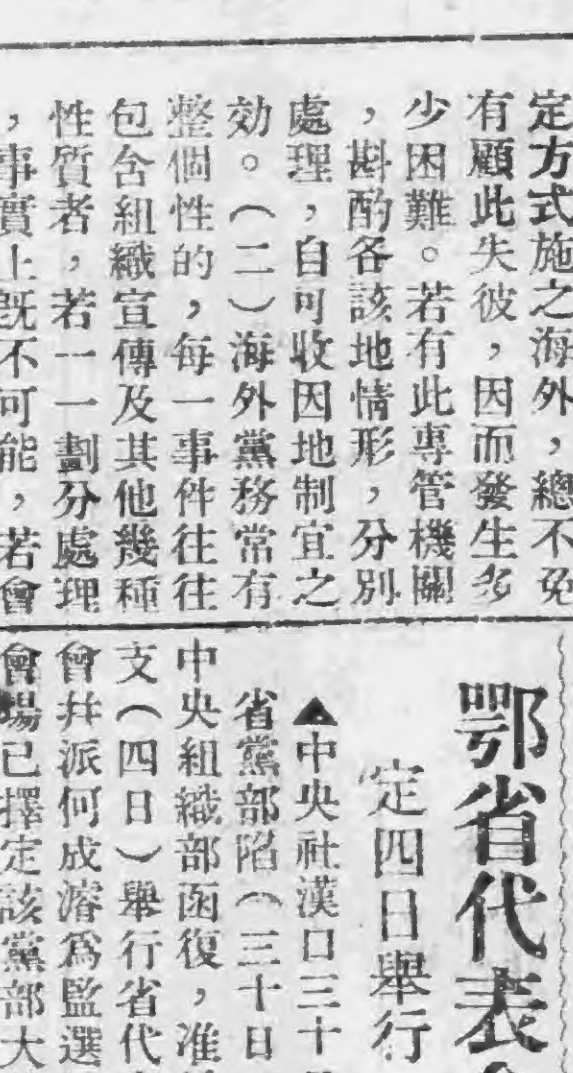 定方式施之海外，總不免
有顧此失彼，因而發生多
少困難。若有此專管機關
，斟酌各該地情形，分別
處理，自可收因地制宜之
効。（二）海外黨務常有
整個性的，每一事件往往
包含組織宣傳及其他幾種
性質者，若一一劃分處理
，事實上既不可能，若會
鄂省代表
定四日舉行
▲中央社漢口三十
省黨部陷（三十日
中央組織部函復，准
支（四日）舉行省代
會幷派何成濬爲監選
會場已擇定該黨部大